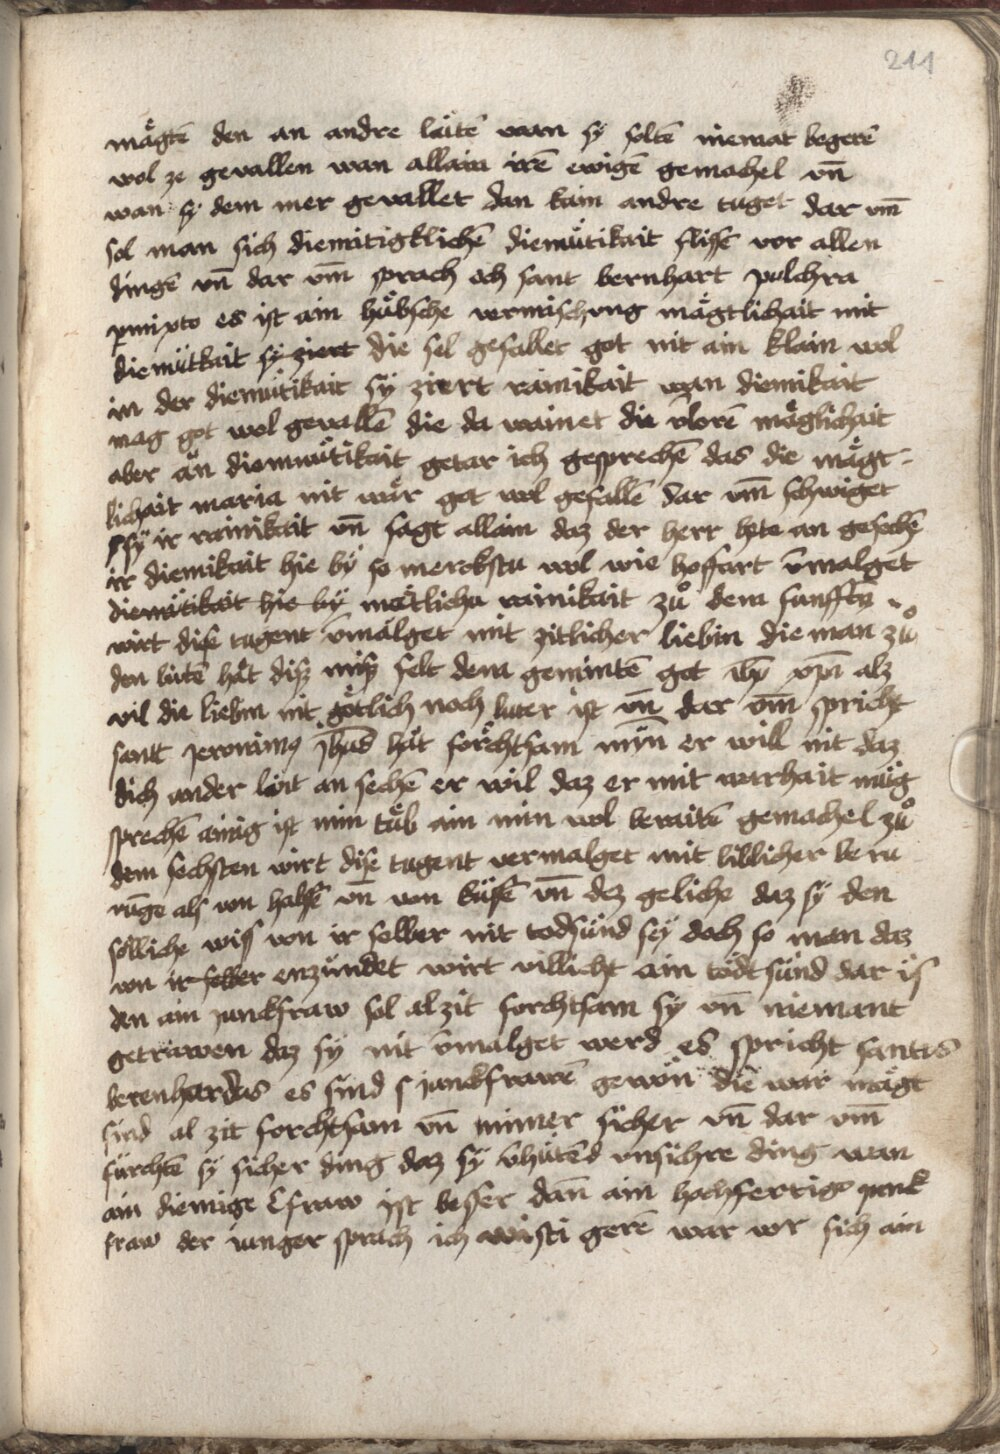 211
mägtē den an andre lütē wan sy soltē niemat begerē
wol ze gevallen wan allain irē ewigē gemachel vn̄
wan sy dem mer gevallet dan kain andre tuget dar vm̄
sol man sich diemitigklichē diemütikait flissē vor allen
dingē vn̄ dar vm̄ sprach och sant bernhart pulchra
pmixto es ist ain hübsche vermischung mägtlichait mit
diemütkait sy ziert die sel gefallet got nit ain klain wol
in der diemütikait sy ziert rainikait wan diemikait
mag got wol gevallē die da wainet die v̄lorē mäglichait
aber än diemuütikait getar ich gesprechē das die mägt-
lichait maria nit wär got wol gefallē dar vm̄ schwiget
sy ir rainikait vn̄ sagt allain daz der herr hete an gesechē
ir diemikait hie by so merckstu wol wie hoffart v̄malget
diemütikait hie by mätlicha rainikait zuͦ dem funfftē
wirt dise tugent v̄mälget mit zitlicher liebin die man zuͦ
den lütē hät diß selt dem gemintē got ih̄s xp̄i alz
vil die liebin nit götlich noch luter ist vn̄ dar vm̄ spricht
sant jeronimꝯ jh̄us hät forchtsam myn er will nit daz
dich ander lüt an sechē er wil daz er mit warhait müg
sprechē ainig ist min tüb ain min wol beraitē gemachel zuͦ
dem sechsten wirt dise tugent vermalget mit liblicher beru
rūge als von halsē vn̄ von küssē vn̄ dez geliche daz sy den
sölliche wiß von ir selber nit todsünd sey doch so man daz
von ir selber enzündet wirt villicht ain tödtsünd dar is
den ain junckfraw sol alzit forchtsam sy vn̄ niemant
getrawen daz sy nit v̄malget werd es spricht santus
berenhardus es sind junckfrawē gewon die war mägt
sind al zit forchtsam vn̄ nimer sicher vn̄ dar vm̄
fürchtē sy sicher ding daz sy v̄hütēd vnsichre ding wan
ain diemige efraw ist besser dan̄ ain hochfertige junk
fraw der iunger sprach ich wisti gerē war vor sich ain